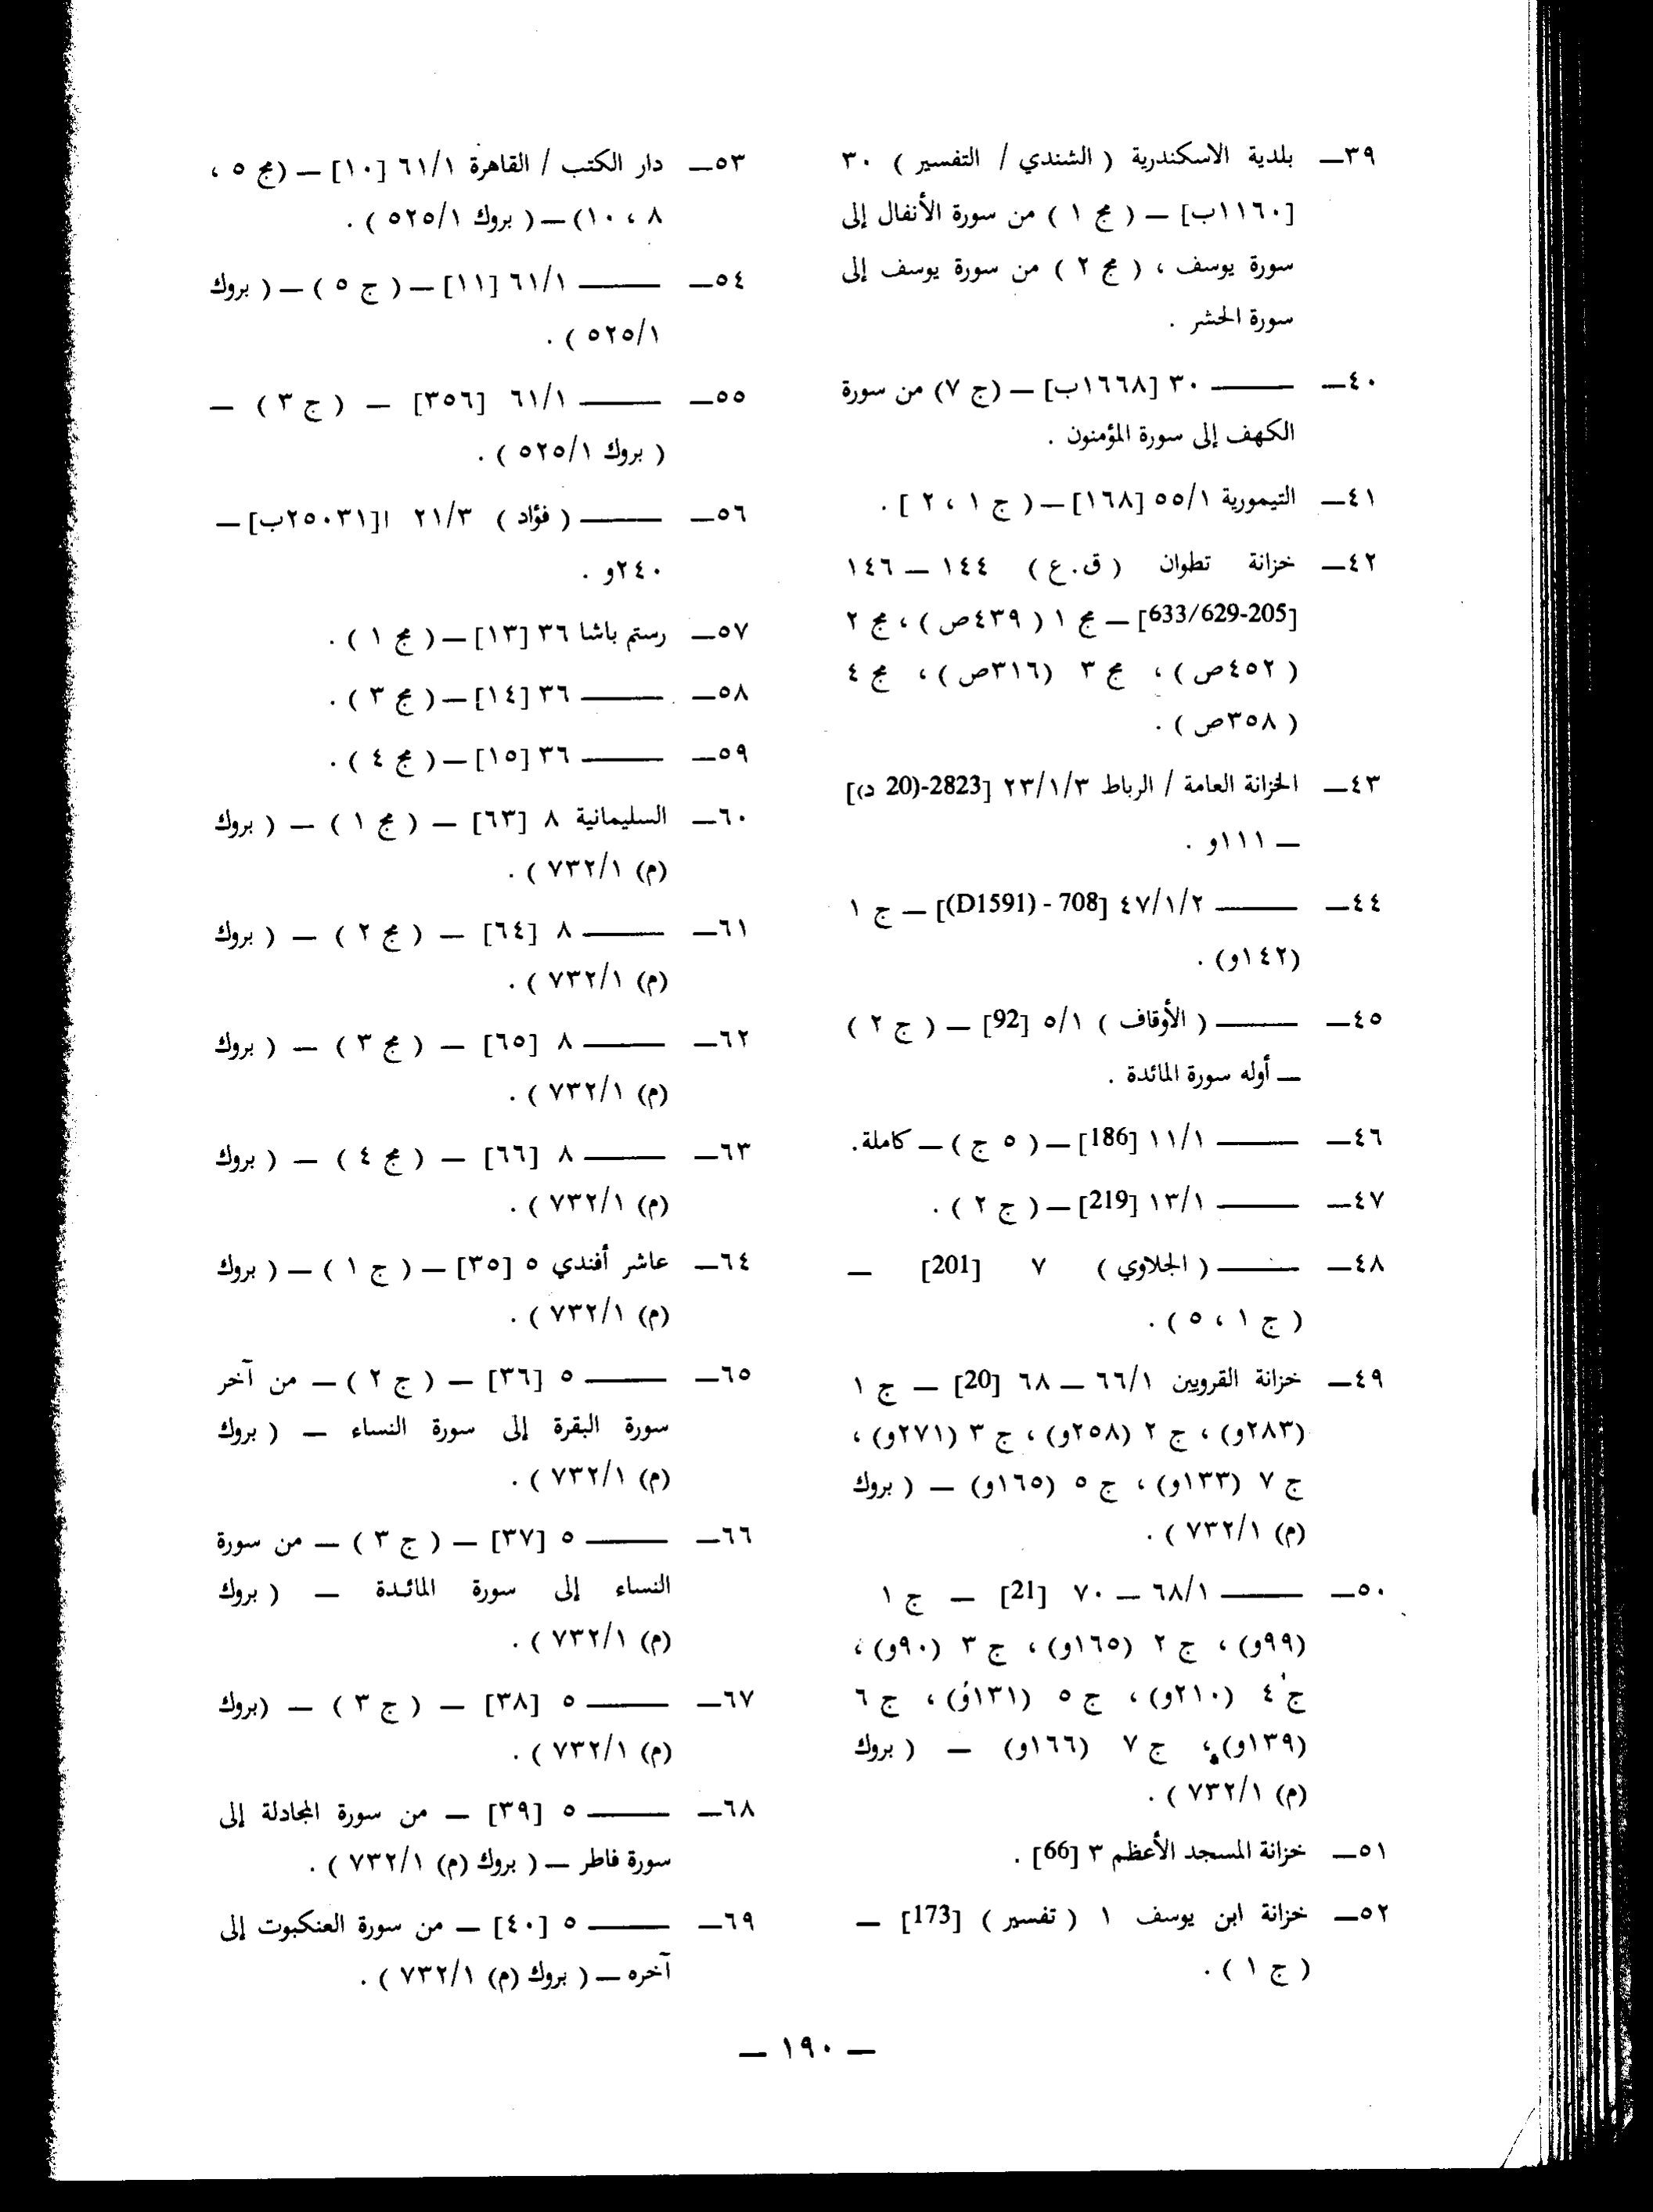 ٣٩— بلدية الاسكندرية ( الشندي / التفسير ) ٣٠
[١١٦٠ب] — ( مج ١ ) من سورة الأنفال إلى
سورة يوسف ، ( مج ٢ ) من سورة يوسف إلى
سورة الحشر .
٤٠— ——— ٣٠ [١٦٦٨ب] — (ج ٧) من سورة
الكهف إلى سورة المؤمنون .
٤١— التيمورية ٥٥/١ [١٦٨] — ( ج ١ ، ٢ ] .
٤٢— خزانة تطوان ( ق.ع ) ١٤٤ — ١٤٦
[633/629-205] — مج ١ ( ٤٣٩ص ) ، مج ٢
( ٤٥٢ص ) ، مج ٣ (٣١٦ص ) ، مج ٤
( ٣٥٨ص ) .
٤٣— الخزانة العامة / الرباط ٢٣/١/٣ [2823-(20 د)]
— ١١١و .
٤٤— ——— ٤٧/١/٢ [708 - (D1591)] — ج ١
(١٤٢و) .
٤٥— ——— ( الأوقاف ) ٥/١ [92] — ( ج ٢ )
— أوله سورة المائدة .
٤٦— ——— ١١/١ [186] — ( ٥ ج ) — كاملة.
٤٧— ——— ١٣/١ [219] — ( ج ٢ ) .
٤٨— ——— ( الجلاوي ) ٧ [201] —
( ج ١ ، ٥ ) .
٤٩— خزانة القرويين ٦٦/١ — ٦٨ [20] — ج ١
(٢٨٣و) ، ج ٢ (٢٥٨و) ، ج ٣ (٢٧١و) ،
ج ٧ (١٣٣و) ، ج ٥ (١٦٥و) — ( بروك
(م) ٧٣٢/١ ) .
٥٠— ——— ٦٨/١ — ٧٠ [21] — ج ١
(٩٩و) ، ج ٢ (١٦٥و) ، ج ٣ (٩٠و) ،
ج ٤ (٢١٠و) ، ج ٥ (١٣١و) ، ج ٦
(١٣٩و) ، ج ٧ (١٦٦و) — ( بروك
(م) ٧٣٢/١ ) .
٥١— خزانة المسجد الأعظم ٣ [66] .
٥٢— خزانة ابن يوسف ١ ( تفسير ) [173] —
( ج ١ ) .
٥٣— دار الكتب / القاهرة ٦١/١ [١٠] — (مج ٥ ،
٨ ، ١٠) — ( بروك ٥٢٥/١ ) .
٥٤— ——— ٦١/١ [١١] — ( ج ٥ ) — ( بروك
٥٢٥/١ ) .
٥٥— ——— ٦١/١ [٣٥٦] — ( ج ٣ ) —
( بروك ٥٢٥/١ ) .
٥٦— ——— ( فؤاد ) ٢١/٣ ا[٢٥٠٣١ب] —
٢٤٠و .
٥٧— رستم باشا ٣٦ [١٣] — ( مج ١ ) .
٥٨— ——— ٣٦ [١٤] — ( مج ٣ ) .
٥٩— ——— ٣٦ [١٥] — ( مج ٤ ) .
٦٠— السليمانية ٨ [٦٣] — ( مج ١ ) — ( بروك
(م) ٧٣٢/١ ) .
٦١— ——— ٨ [٦٤] — ( مج ٢ ) — ( بروك
(م) ٧٣٢/١ ) .
٦٢— ——— ٨ [٦٥] — ( مج ٣ ) — ( بروك
(م) ٧٣٢/١ ) .
٦٣— ——— ٨ [٦٦] — ( مج ٤ ) — ( بروك
(م) ٧٣٢/١ ) .
٦٤— عاشر أفندي ٥ [٣٥] — ( ج ١ ) — ( بروك
(م) ٧٣٢/١ ) .
٦٥— ——— ٥ [٣٦] — ( ج ٢ ) — من آخر
سورة البقرة إلى سورة النساء — ( بروك
(م) ٧٣٢/١ ) .
٦٦— ——— ٥ [٣٧] — ( ج ٣ ) — من سورة
النساء إلى سورة المائدة — ( بروك
(م) ٧٣٢/١ ) .
٦٧— ——— ٥ [٣٨] — ( ج ٣ ) — (بروك
(م) ٧٣٢/١ ) .
٦٨— ——— ٥ [٣٩] — من سورة المجادلة إلى
سورة فاطر — ( بروك (م) ٧٣٢/١ ) .
٦٩— ——— ٥ [٤٠] — من سورة العنكبوت إلى
آخره — ( بروك (م) ٧٣٢/١ ) .
— ١٩٠ —